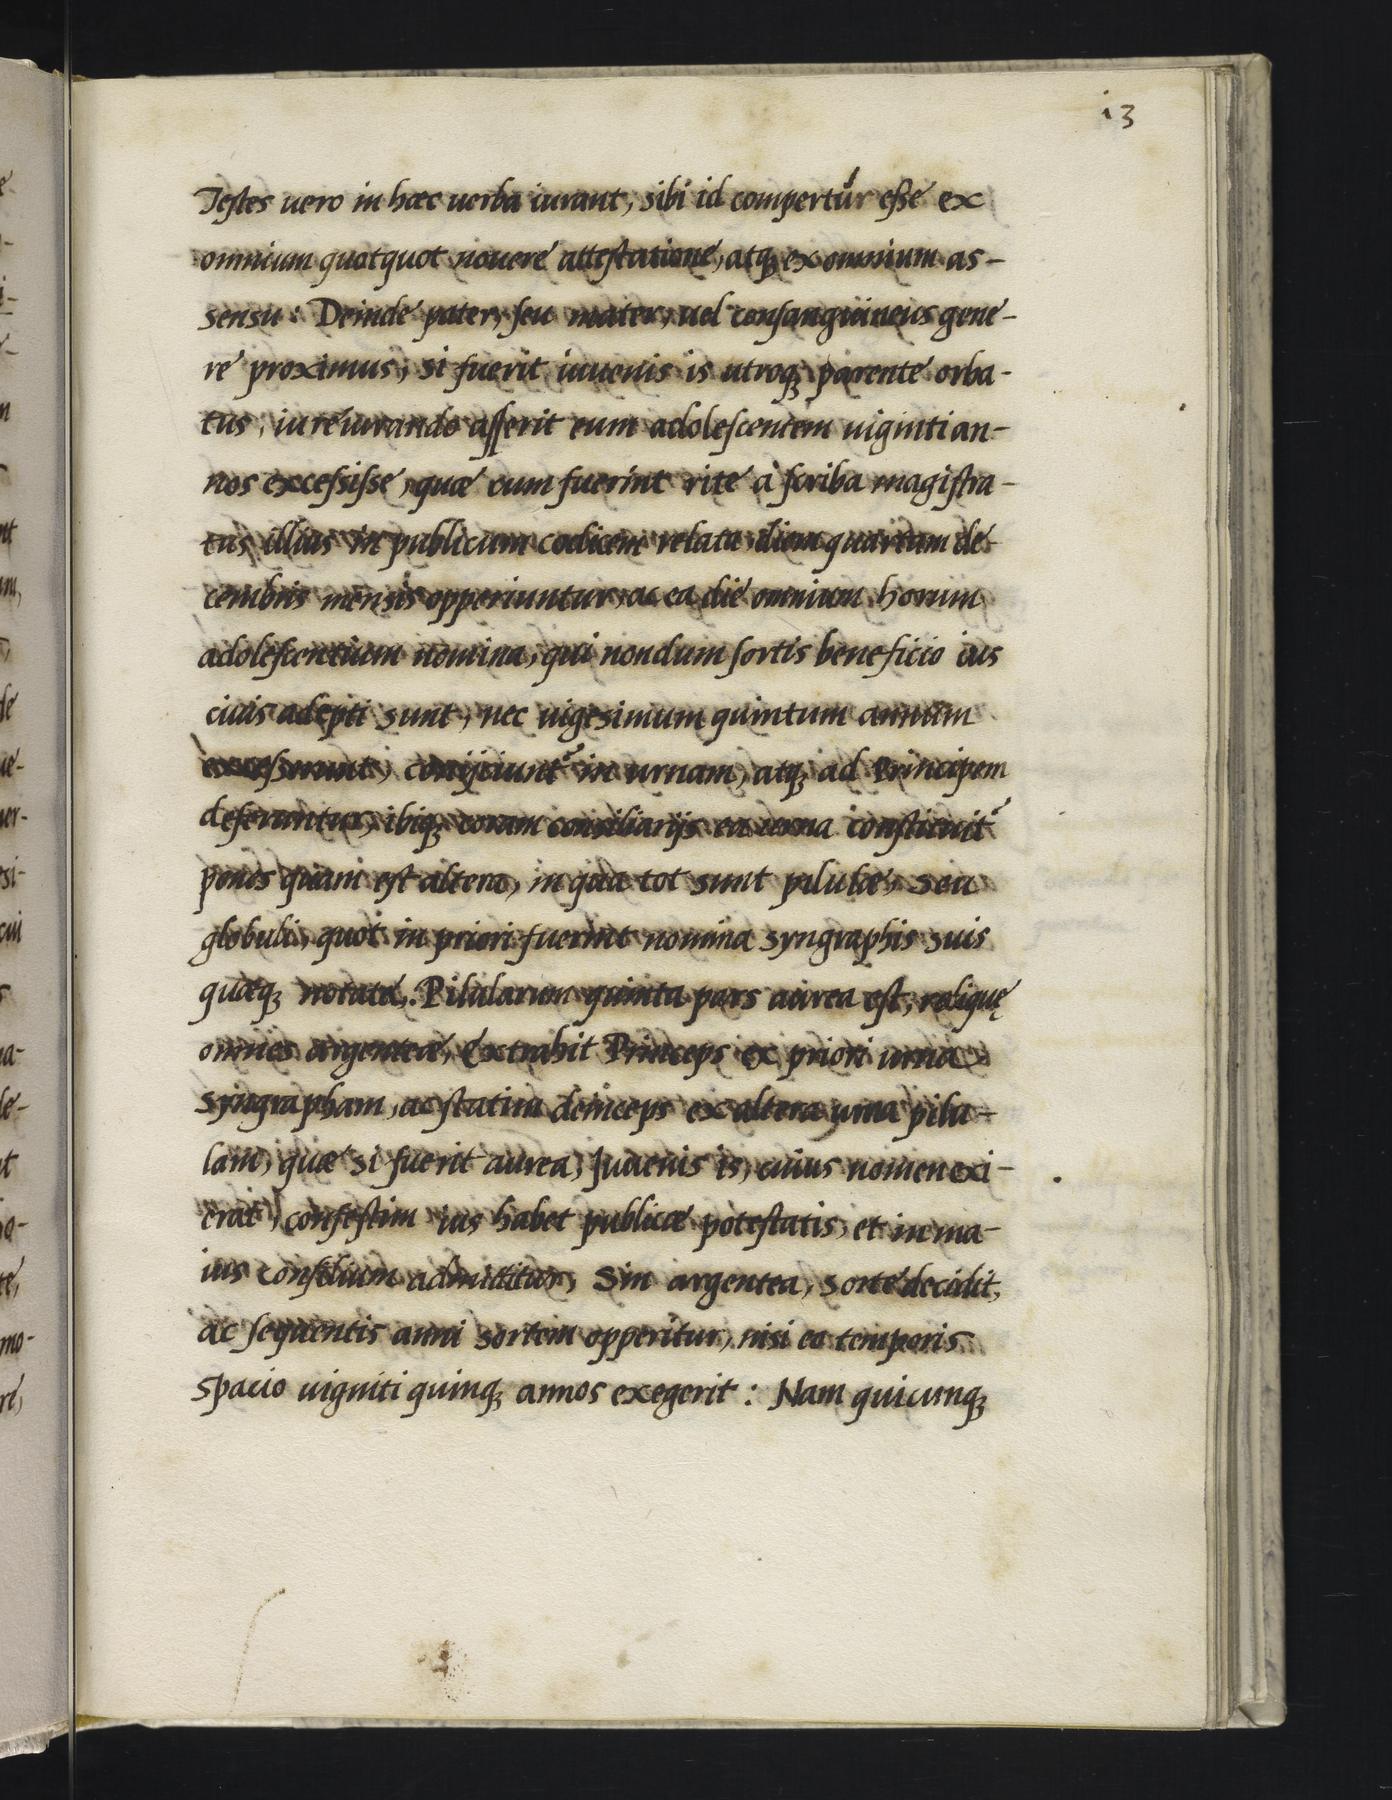 i3
Testes uero in hæc uerba iurant, sibi id compertũ esse ex
omnium quotquot nouere attestatione, atq; ex omnium as-
sensu: Deinde pater, seu mater, uel consanguineus gene-
re proximus, si fuerit iuuenis is utroq; parente orba-
tus, iureiurando asserit eum adolescentem uiginti an-
nos excessisse, quæ cum fuerint rite à scriba magistra-
tus illius in publicum codicem relata, diem quartam de-
cembris mensis opperiuntur, ac ea die omnium horum
adolescentium nomina, qui nondum sortis beneficio ius
ciuis adepti sunt, nec uigesimum quintum annum
excesserunt, conijciunt̃ in urnam, atq; ad Principem
deferuntur, ibiq; coram consiliarijs ea urna constituit̃
penes quam est altera, in qua tot sunt pilulæ, seu
globuli, quot in priori fuerint nomina syngraphis suis
quæq; notata. Pilularum quinta pars aurea est, reliquę
omnes argenteæ, Extrahit Princeps ex priori urna
syngrapham, ac statim deinceps ex altera urna pilu-
lam, quæ si fuerit aurea, Iuuenis is, cuius nomen exi-
erat, confestim ius habet publicæ potestatis, et in ma-
ius consilium admittitur, Sin argentea, sorte decidit,
ac sequentis anni sortem opperitur, nisi eo temporis
spacio uiginti quinq; annos exegerit: Nam quicunq;